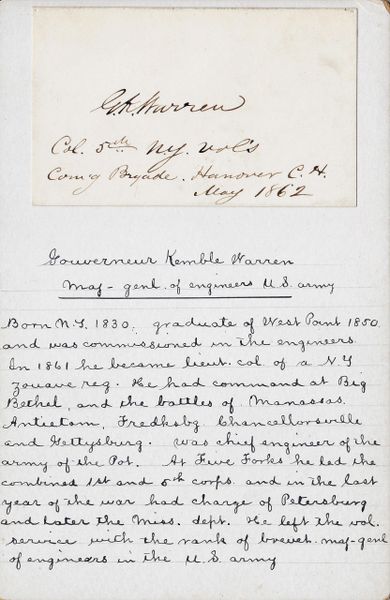 G.K. Warren
Col. 5th N.Y. Vols
Com'g Brgade. Hanover C.H.
May 1862
Gouverneur Kemble Warren
Maj-genl. of engineers U.S. army
Born N.Y. 1830. graduate of West Point 1850
and was commissioned in the engineers
In 1861 he became lieut. col. of a N.Y
zouave reg. He had command at Big
Bethel, and the battles of Manassas.
Antietom, Fredksbg Chancellorsville
and Gettysburg. was chief engineer of the
army of the Pot. At Five Forks he led the
combined 1st and 5th corps. and in the last
year of the war had charge of Petersburg
and later the Miss. dept. He left the vol.
service with the rank of brevet. maj-genl
of engineers in the U.S. army